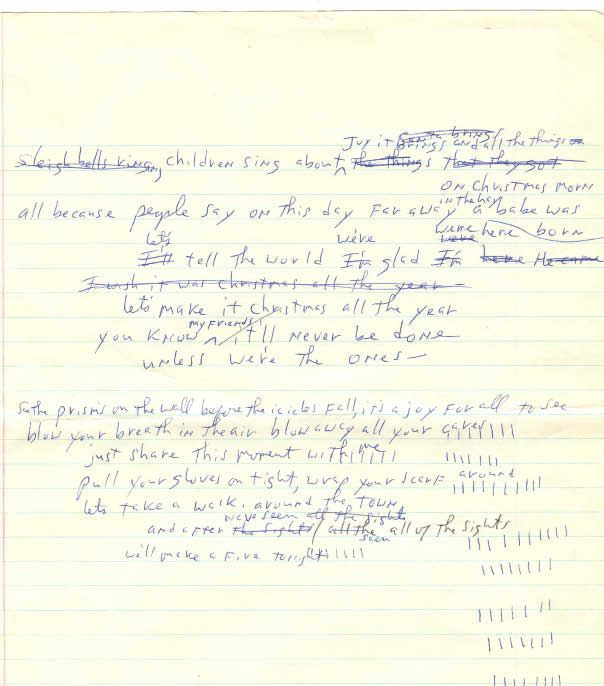 Joy it Santa brings
brings and all the things on
sleigh bells ring sing children sing about the things that they got
on Christmas morn
in the hay
all because people say on this day far away a babe was
let's we're were here born
I'll tell the world I'm glad I'm here He came
I wish it was christmas all the year
let's make it christmas all the year
my friends
you know it'll never be done
unless we're the ones
the prisms on the wall before the icicles fall, it's a joy for all to see
blow your breath in the air blow away all your cares
just share this moment with me
pull your gloves on tight, wrap your scarf around
lets take a walk, around the town
we've seen all the sights
and after the sights all the all of the sights
seen
will make a fire tonight